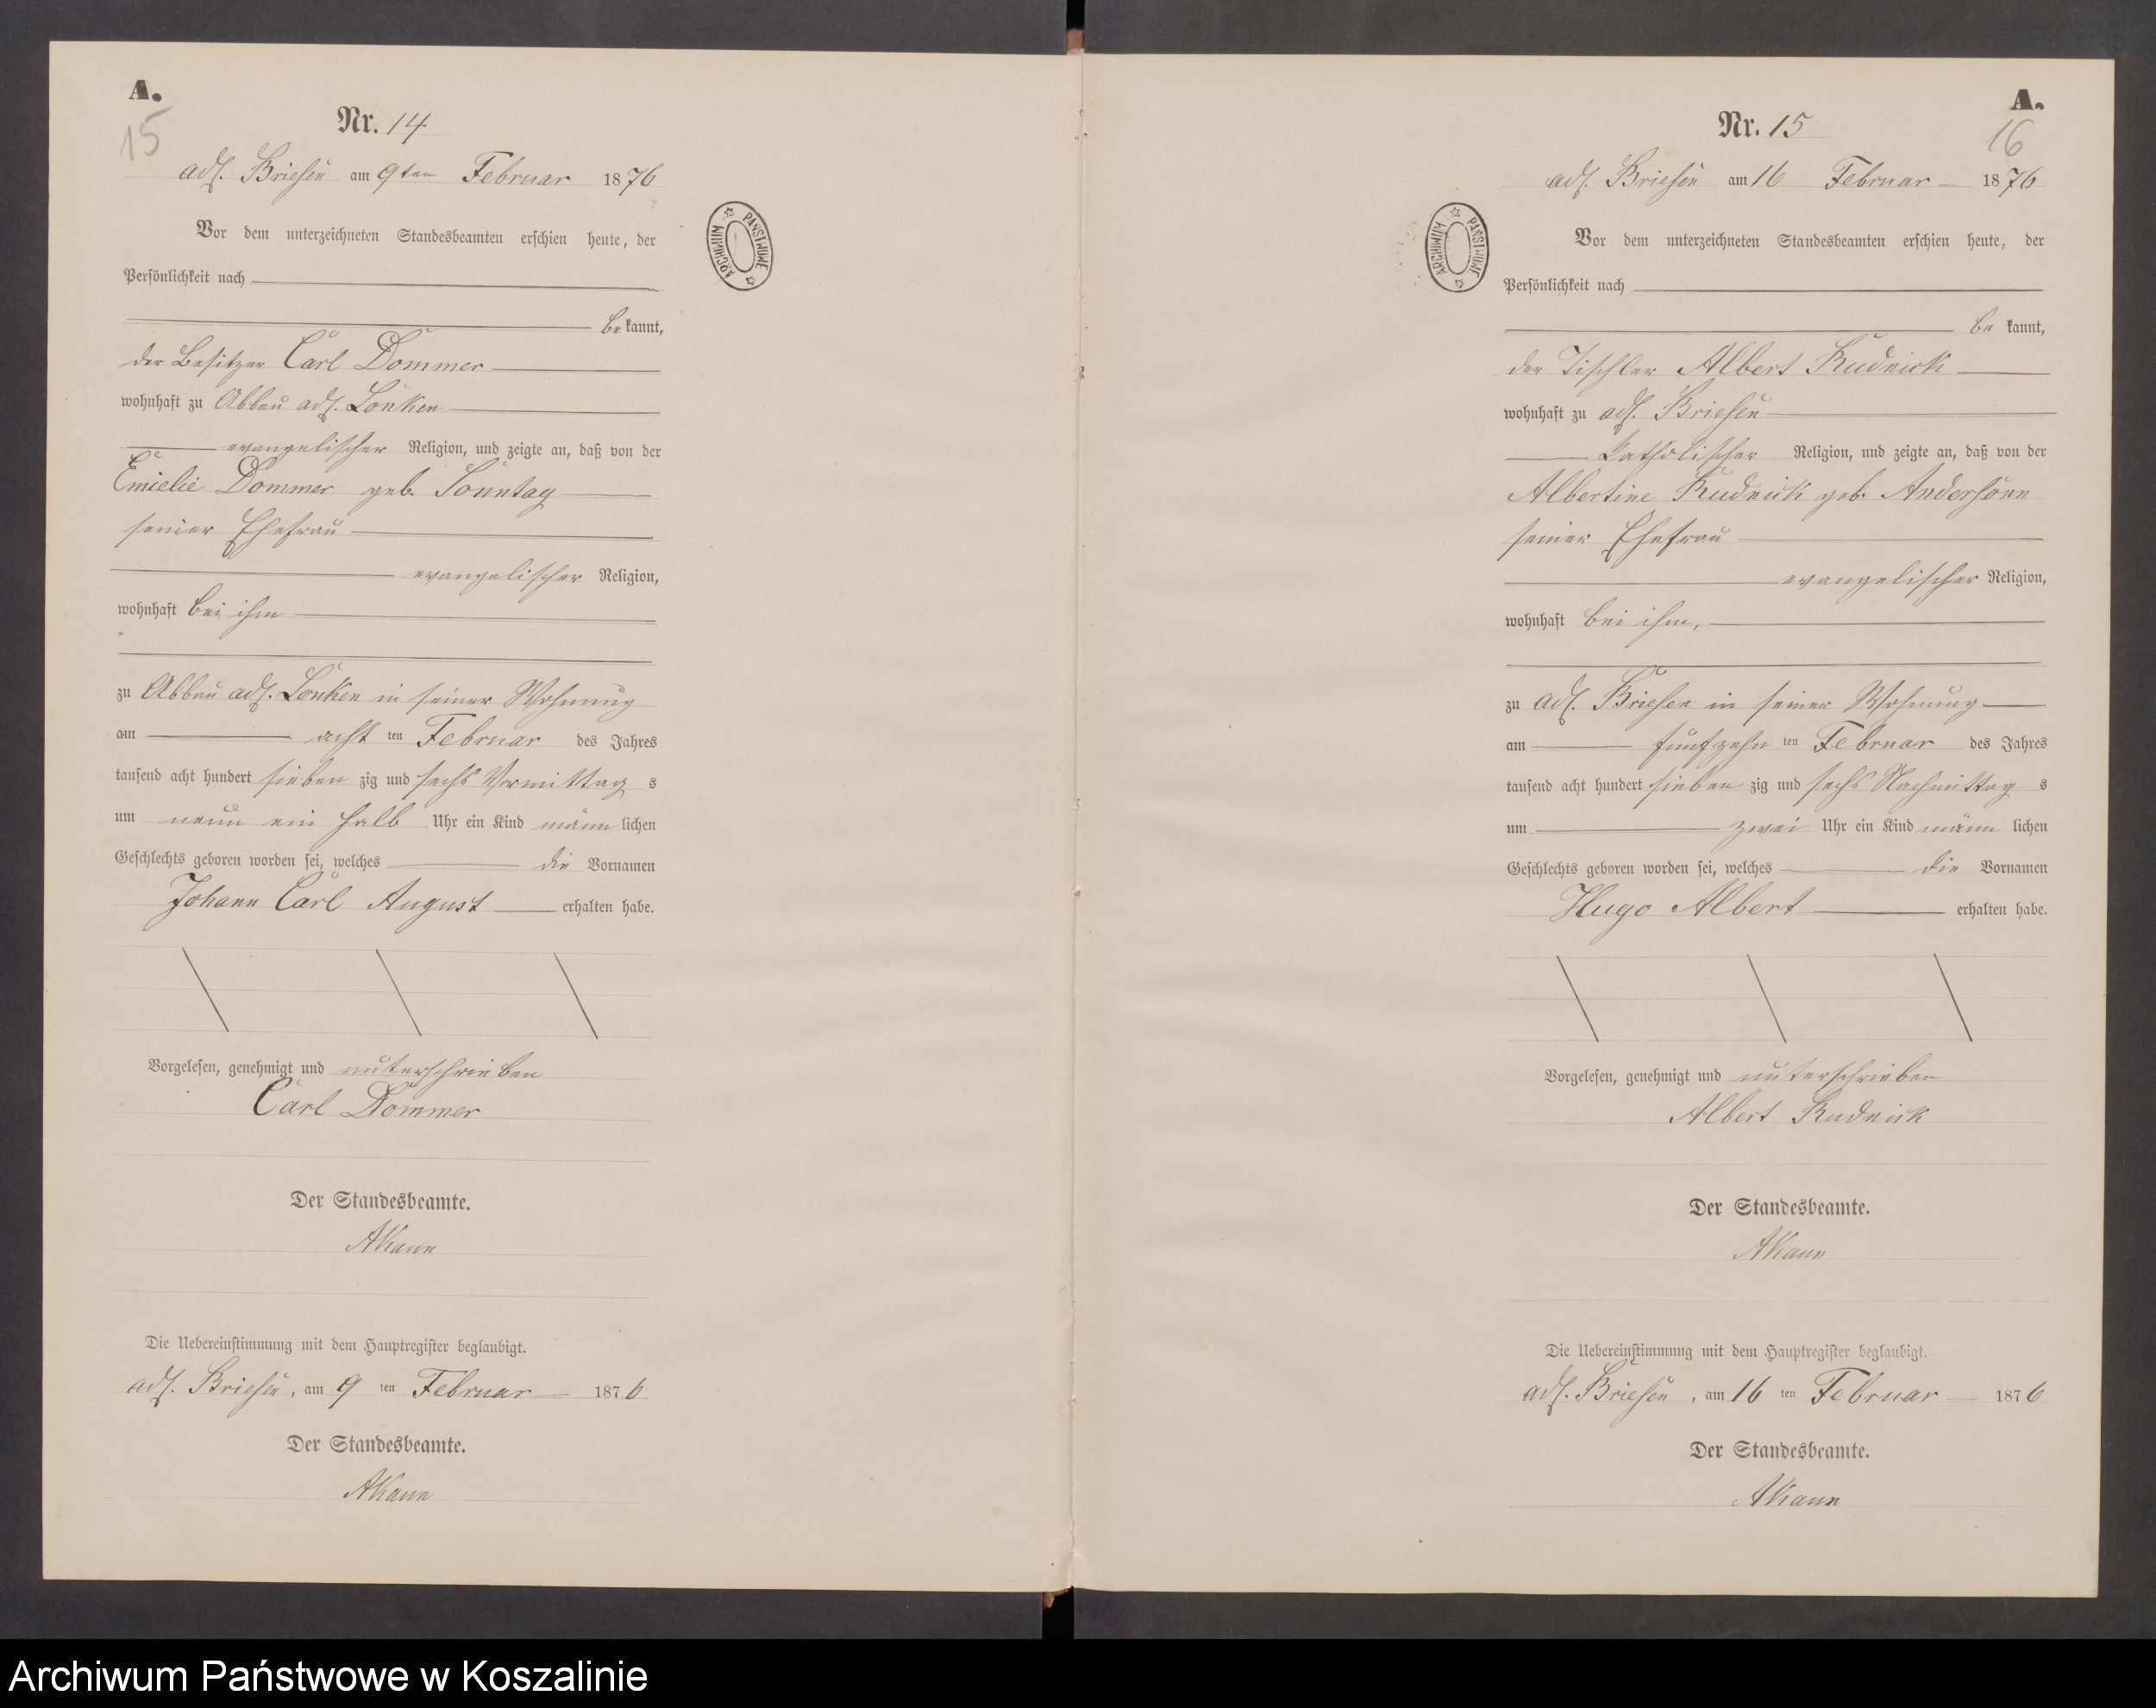 A.
15
Nr. 14
adl. Briesen am 9ten Februar 1876
Vor dem unterzeichneten Standesbeamten erschien heute, der
Persönlichkeit nach
bekannt,
der Besitzer Carl Dommer
wohnhaft zu Abbau adl. Lonken
evangelischer Religion, und zeigte an, daß von der
Emielie Dommer geb. Sonntag
seiner Ehefrau
evangelischer Religion,
wohnhaft bei ihm
zu Abbau adl. Lonken in seiner Wohnung
am acht ten Februar des Jahres
tausend acht hundert sieben zig und sechs Vormittag s
um neun ein halb Uhr ein Kind männ lichen
Geschlechts geboren worden sei, welches die Vornamen
Johann Carl August erhalten habe.
Vorgelesen, genehmigt und unterschrieben
Carl Dommer
Der Standesbeamte.
AKann
Die Uebereinstimmung mit dem Hauptregister beglaubigt.
adl. Briesen, am 9 ten Februar 1876
Der Standesbeamte.
AKann
ARCHIWUM PAŃSTWOWE
A.
16
Nr. 15
adl. Briesen am 16 Februar 1876
Vor dem unterzeichneten Standesbeamten erschien heute, der
Persönlichkeit nach
be kannt,
der Tischler Albert Rudnick
wohnhaft zu adl. Briesen
katholischer Religion, und zeigte an, daß von der
Albertine Rudnick geb. Andersonn
seiner Ehefrau
evangelischer Religion,
wohnhaft bei ihm,
zu adl. Briesen in seiner Wohnung
am fünfzehn ten Februar des Jahres
tausend acht hundert sieben zig und sechs Nachmittag s
um zwei Uhr ein Kind männ lichen
Geschlechts geboren worden sei, welches die Vornamen
Hugo Albert erhalten habe.
Vorgelesen, genehmigt und unterschrieben
Albert Rudnick
Der Standesbeamte.
AKann
Die Uebereinstimmung mit dem Hauptregister beglaubigt.
adl. Briesen, am 16 ten Februar 1876
Der Standesbeamte.
AKann
ARCHIWUM PAŃSTWOWE
Archiwum Państwowe w Koszalinie